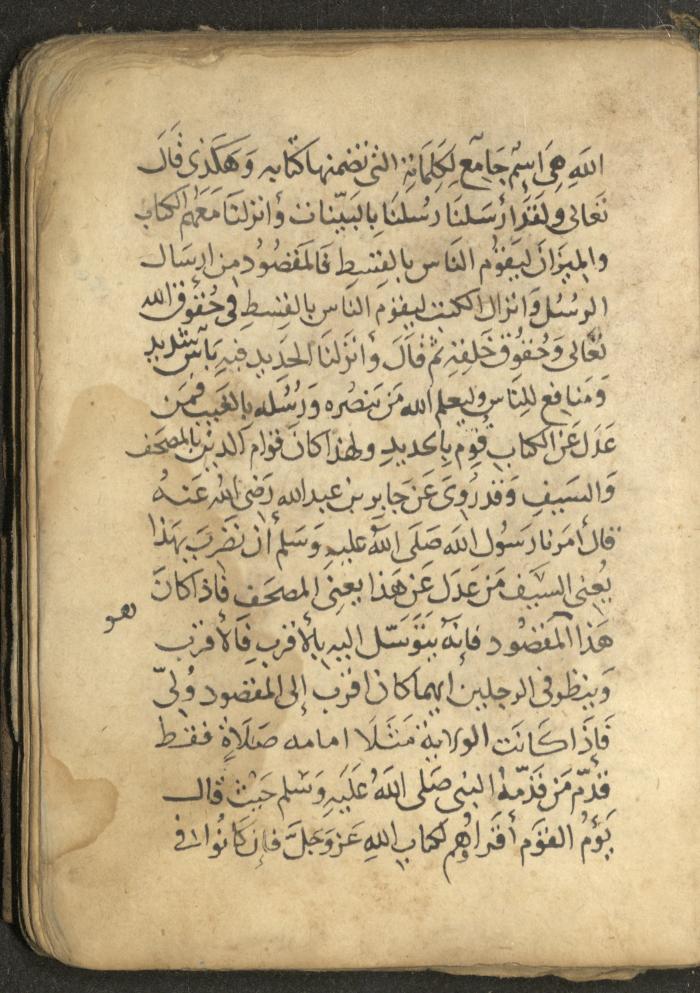 الله هِىَ اسِمْ جَامع لِكَلِمَاتِهِ التى تضمنها كتابه وَهَكَذى قَالَ
تعَالى ولقَدْ أرسَلنَا رسُلنَا بِالبَيّنات وأنزلنَا مَعَهُم الكتاب
والميزَان ليَقوُم النَاس بالقِسطِ فَالمقصُود من إرسَال
الرسُل وَانزال الكتب ليقوم الناس بالقِسطِ فى حُقوق الله
تعَالى وَحقوُق خَلقِهِ ثم قَالَ وأنزَلنَا الحَدِيد فيهِ بَأس شديد
وَمَنافع للِنَاسِ وليعلم الله مَن يَنصُره وَرُسُله بالغَيب فَمَن
عَدَل عَن الكتاب قُوِّم بِالحديدِ ولهذا كانَ قوام الدين بالمصحَف
وَالسَيفِ وَقد رُوىَ عَن جَابر بن عبد الله رَضى الله عَنهُ
قالَ أمَرنا رَسُول الله صَلَى اللَّه عَليهِ وَسَلم أن نَضْرِبَ بهَذا
يعُنى السَيْف مَن عَدَل عَن هَذا يعنِى المصحَف فَاذا كانَ
هَذا المقصُود فإنهُ يتَوسَّل اليه بِالأقربِ فَالأقرب
وَينظر فى الرجلين ايهما كان اقرَب إلى المقصُود وُلىّ
فَإذَا كَانَت الولايَة مَثَلَا امامه صَلَاةٍ فقط
قدّم مَن قَدَّمهُ النبى صَلى اللَّهُ عَلَيهِ وَسَلم حَيْث قال
يَؤمُ القَوم أقرَاوُهُم لكتابِ اللهِ عَز وَجَلَّ فإن كَانوُا فى